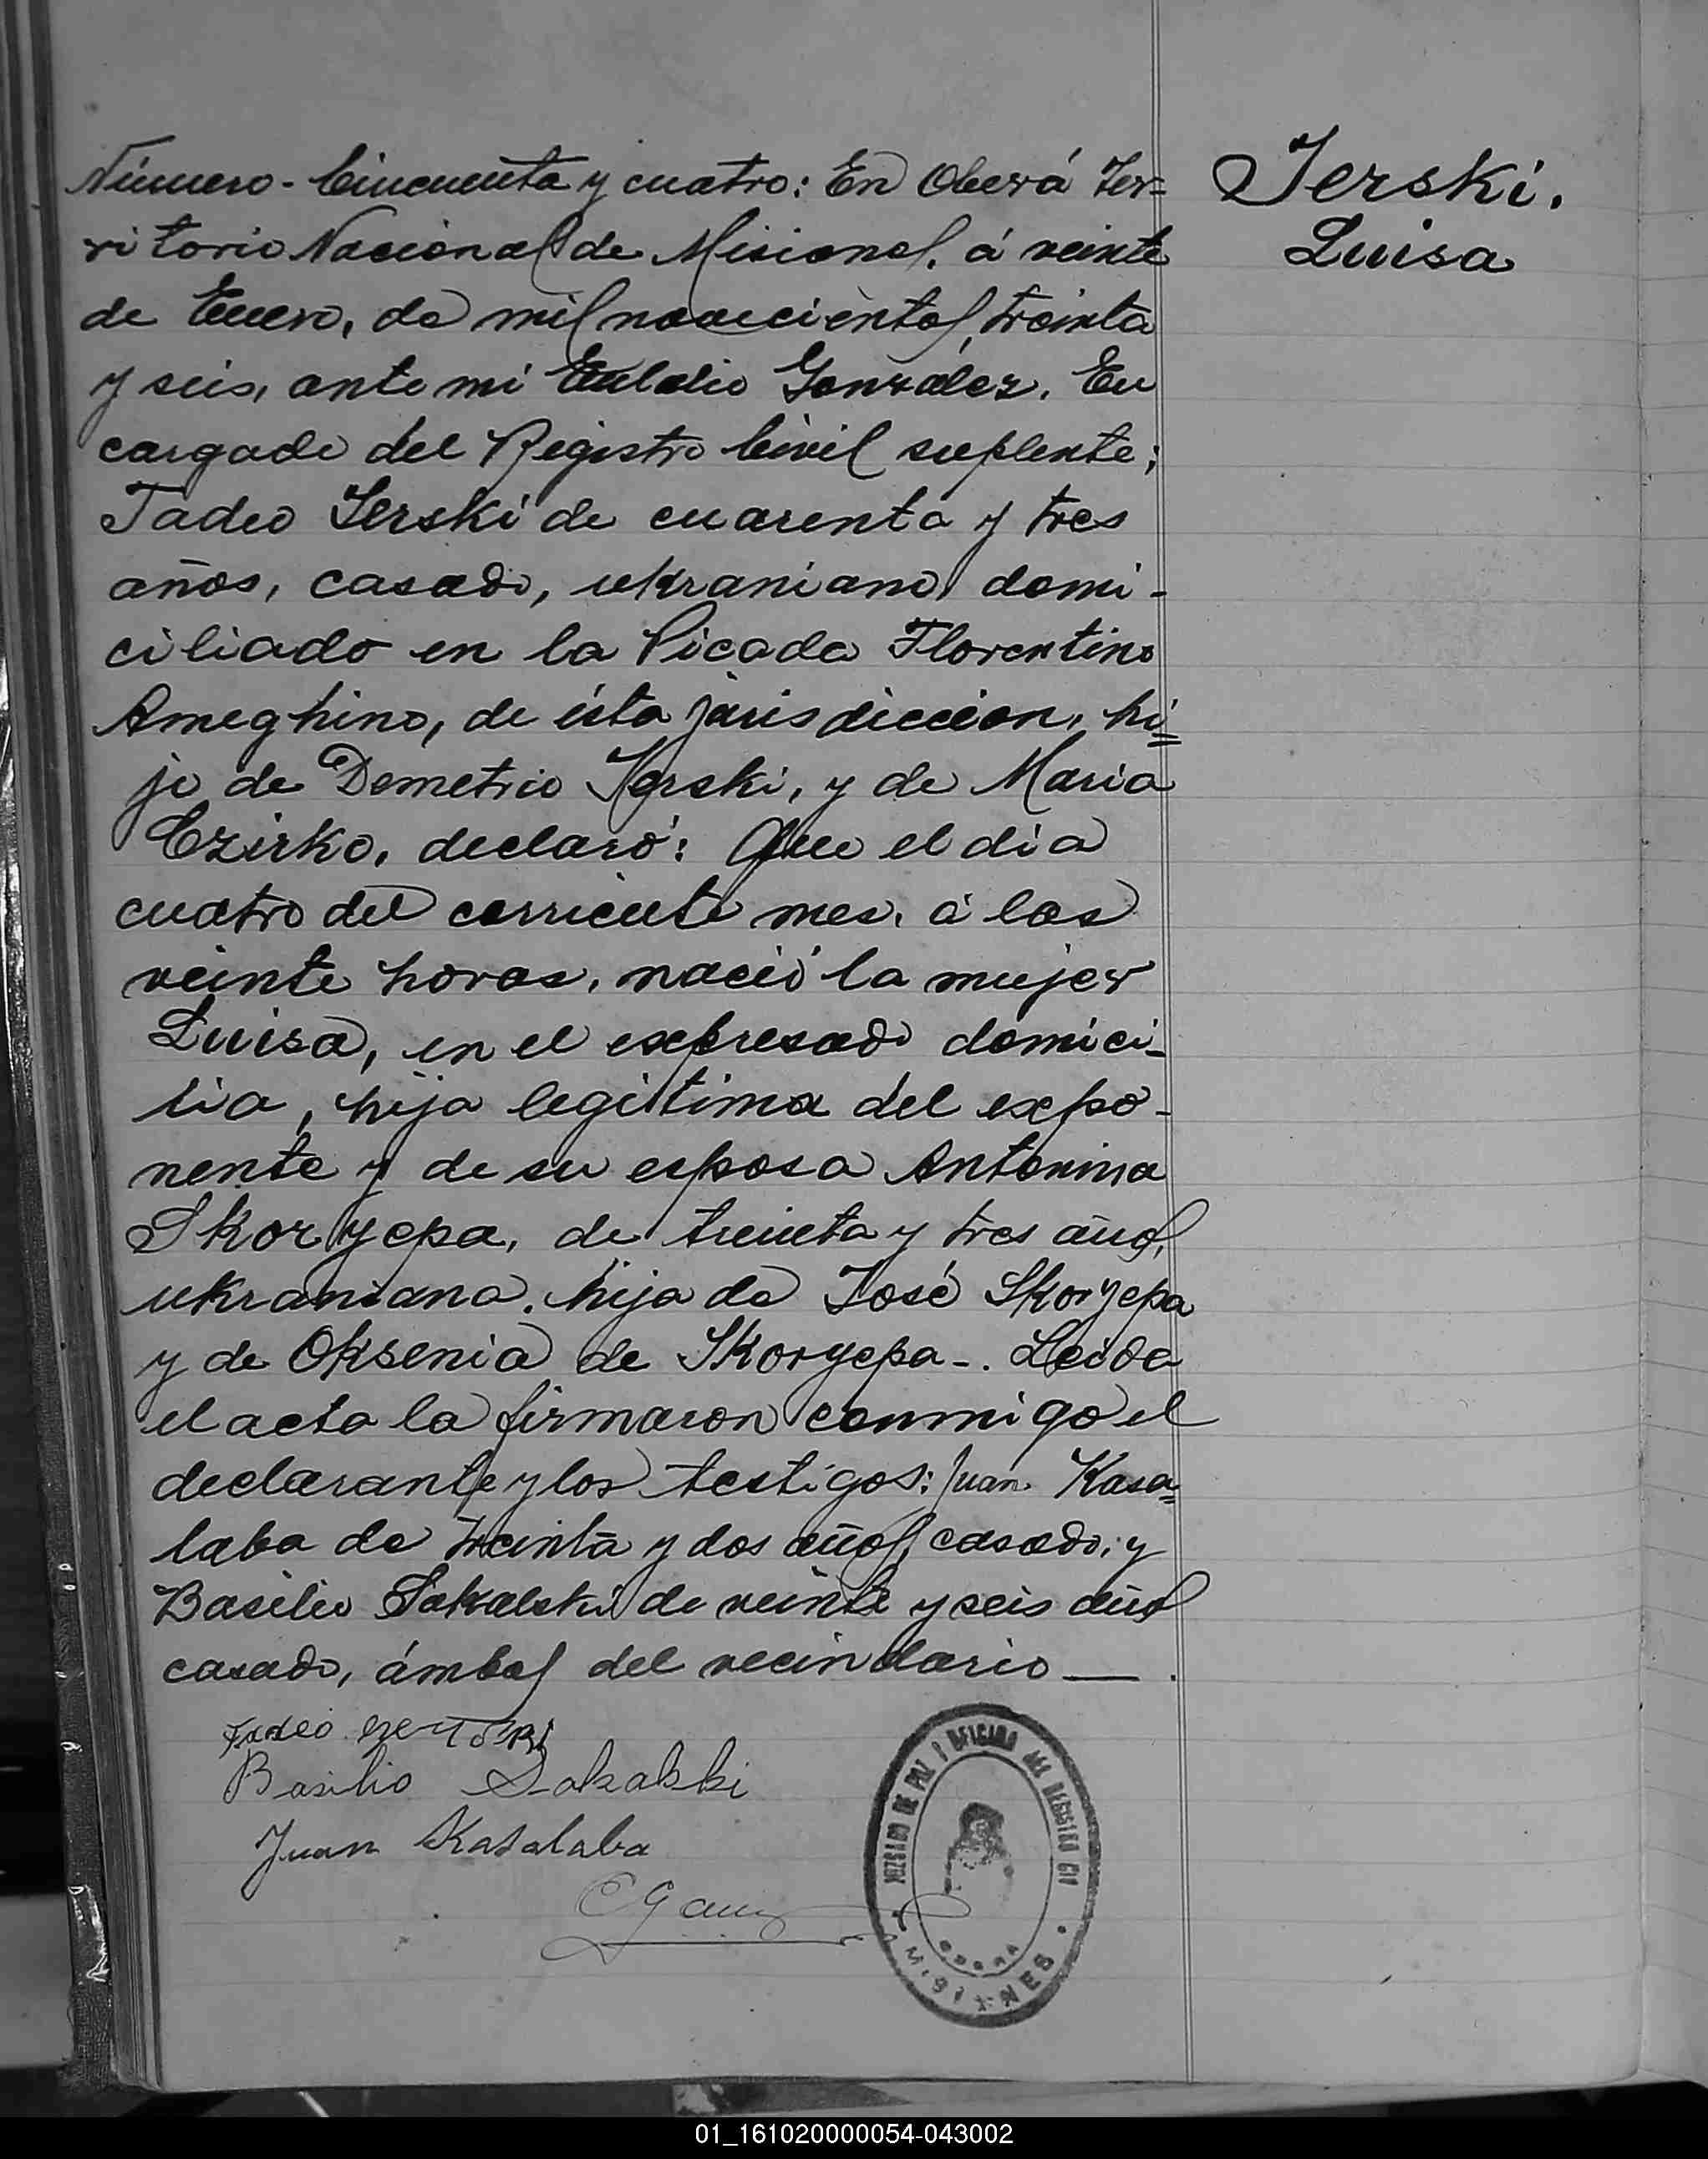 Número - Cincuenta y cuatro: En Oberá Ter=
ritorio Nacional de Misiones, á veinte
de Enero, de mil novecientos treinta
y seis, ante mi Eulalio González, En
cargado del Registro Civil suplente;
Tadeo Jerski de cuarenta y tres
años, casado, ukraniano domi-
ciliado en la Picada Florentino
Ameghino, de ésta jurisdiccion, hi=
jo de Demetrio Jerski, y de Maria
Czirko, declaró: Que el dia
cuatro del corriente mes, á las
veinte horas, nació la mujer
Luisa, en el expresado domici-
lio, hija legitima del expo-
nente y de su esposa Antonina
Skoryepa, de treinta y tres años,
ukraniana, hija de José Skoryepa
y de Oksenia de Skoryepa-. Leida
el acta la firmaron conmigo el
declarante y los testigos: Juan Kasa=
laba de treinta y dos años, casado; y
Basilio Sakalski de veinte y seis años
casado, ámbos del vecindario —.
Jerski.
Luisa
Tadeo
Basilio Sakalski
Juan Kasalaba
JUZGADO DE PAZ Y OFICINA DEL REGISTRO CIVIL
OBERA
MISIONES
01_161020000054-043002